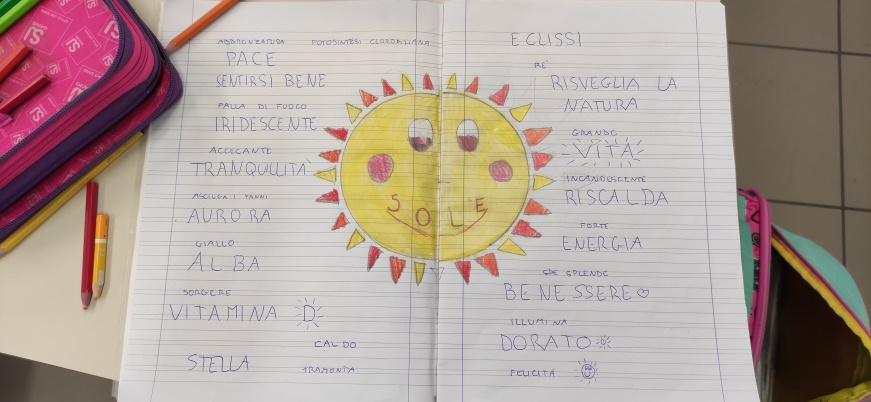 ABBRONZATURA FOTOSINTESI CLOROFILLIANA
PACE
SENTIRSI BENE
PALLA DI FUOCO
IRIDESCENTE
ACCECANTE
TRANQUILLITÀ
ASCIUGA I PANNI
AURORA
GIALLO
ALBA
SORGERE
VITAMINA D
CALDO
STELLA
TRAMONTA
SOLE
ECLISSI
RE'
RISVEGLIA LA
NATURA
GRANDE
VITA
INCANDESCENTE
RISCALDA
FORTE
ENERGIA
BENESSERE
ILLUMINA
DORATO
FELICITÀ